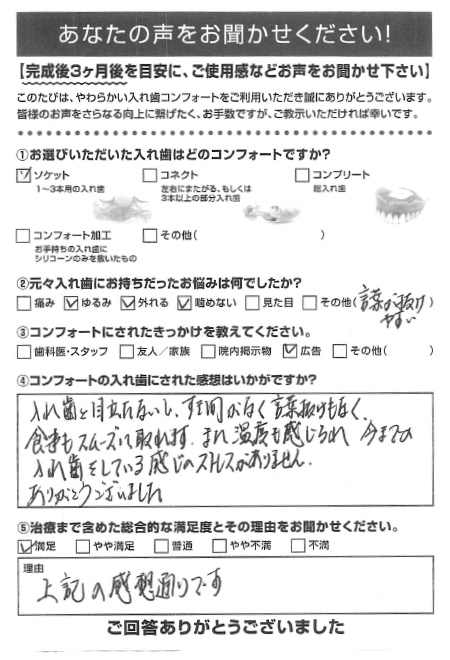 あなたの声をお聞かせください!
【完成後3ヶ月後を目安に、ご使用感などお声をお聞かせ下さい】
このたびは、やわらかい入れ歯コンフォートをご利用いただき誠にありがとうございます。
皆様のお声をさらなる向上に繋げたく、お手数ですが、ご教示いただければ幸いです。
①お選びいただいた入れ歯はどのコンフォートですか?
☑ソケット □コネクト □コンプリート
1〜3本用の入れ歯 左右にまたがる、もしくは 総入れ歯
3本以上の部分入れ歯
□コンフォート加工 □その他( )
お手持ちの入れ歯に
シリコーンのみを敷いたもの
②元々入れ歯にお持ちだったお悩みは何でしたか?
□痛み ☑ゆるみ ☑外れる ☑噛めない □見た目 □その他(言葉が抜けやすい)
③コンフォートにされたきっかけを教えてください。
□歯科医・スタッフ □友人/家族 □院内掲示物 ☑広告 □その他( )
④コンフォートの入れ歯にされた感想はいかがですか?
入れ歯と目立たないし、すき間がなく言葉抜けもなく、
食事もスムーズに取れます。また温度も感じられ 今までの
入れ歯をしている感じのストレスがありません。
ありがとうございました
⑤治療まで含めた総合的な満足度とその理由をお聞かせください。
☑満足 □やや満足 □普通 □やや不満 □不満
理由
上記の感想通りです
ご回答ありがとうございました